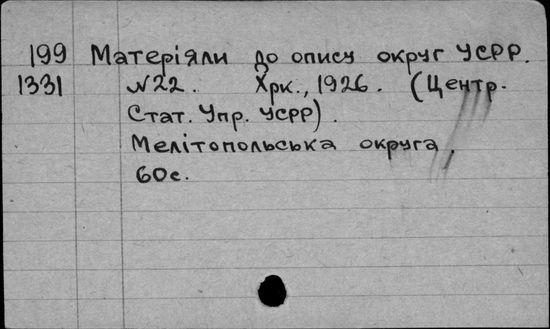 199 Матеріяли до опису округ УСРР.
1331 №22. Хрк., 1926. (Центр.
Стат. Упр. УСРР).
Мелітопольська округа,
60с.